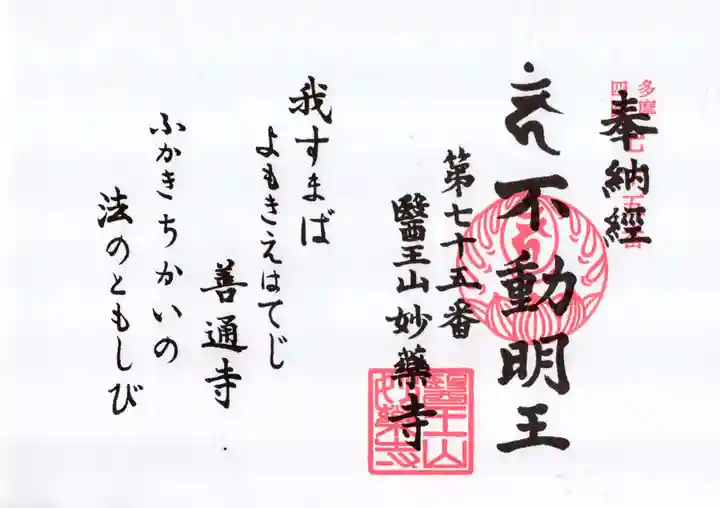 奉納經
不動明王
第七十五番
醫王山妙藥寺
我すまば
よもきえはてじ
善通寺
ふかきちかいの
法のともしび
醫王山
妙藥寺